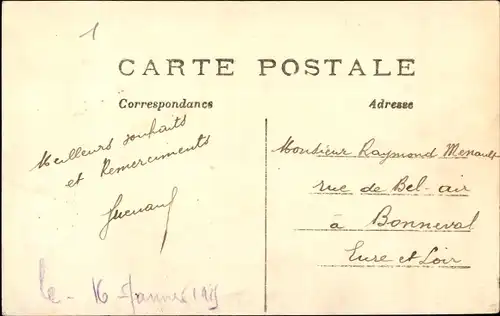 1
CARTE POSTALE
Correspondance
Adresse
Meilleurs souhaits
et Remerciments
Monsieur Raymond Menault
rue de Bel-air
à Bonneval
Eure et Loir
le - 16 Janvier